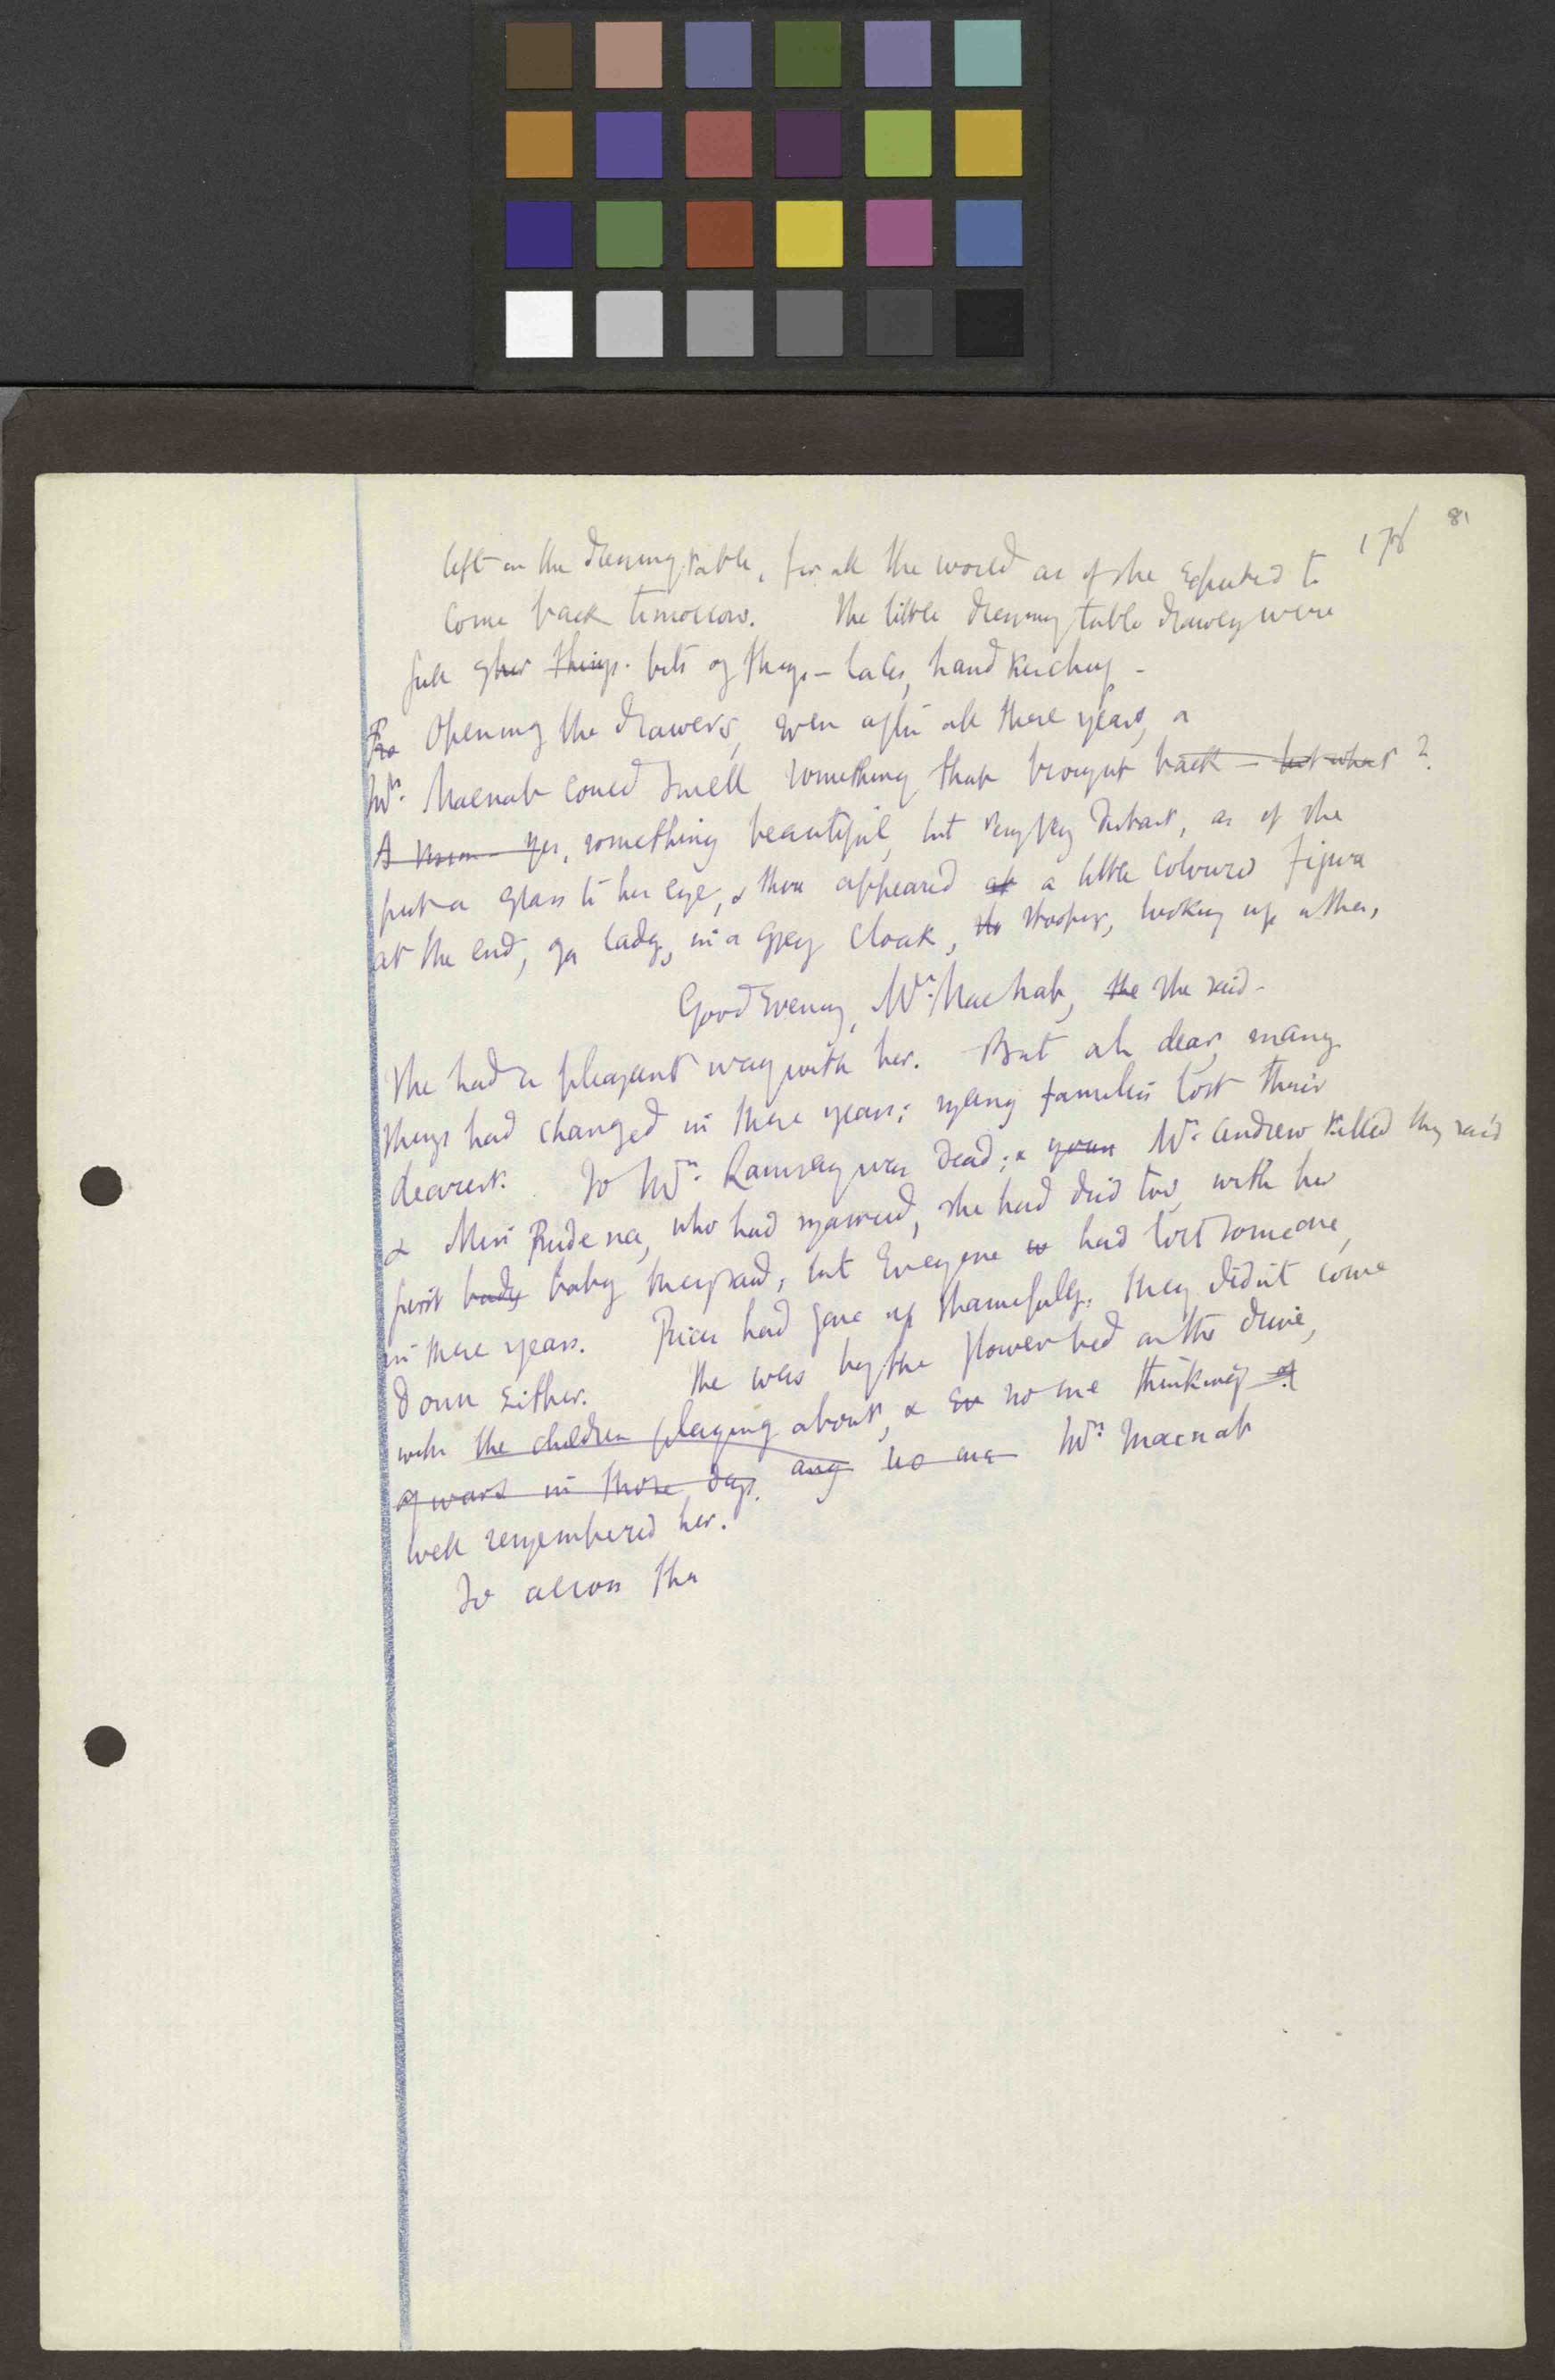 81
178
left on the dressing table, for all the world as if she expected to
come back tomorrow. The little dressing table drawers were
full of her things. bits of things - laces, handkerchiefs -
Opening the drawers, even after all these years, a
Mrs. Macnab could smell something that brought back - but what?
A vision - Yes, something beautiful, but very very distant, as if she
put a glass to her eye, & there appeared at a little coloured figure
at the end, of a lady, in a grey cloak, sto stooping, looking up at her,
Good Evening, Mrs. Macnab, the she said -
She had a pleasant way with her. But oh dear, many
things had changed in these years; many families lost their
dearest. So Mrs. Ramsay was dead; & youn Mr. Andrew killed they said
& Miss Prudence, who had married, she had died too, with her
first bady baby they said, but Everyone w had lost someone,
in these years. Prices had gone up shamefully. They didn't come
down Either. She was by the flower bed on the drive,
with the children playing about, & Ev no one thinking of
of wars in those days. any no one Mrs. Macnab
well remembered her.
So across the